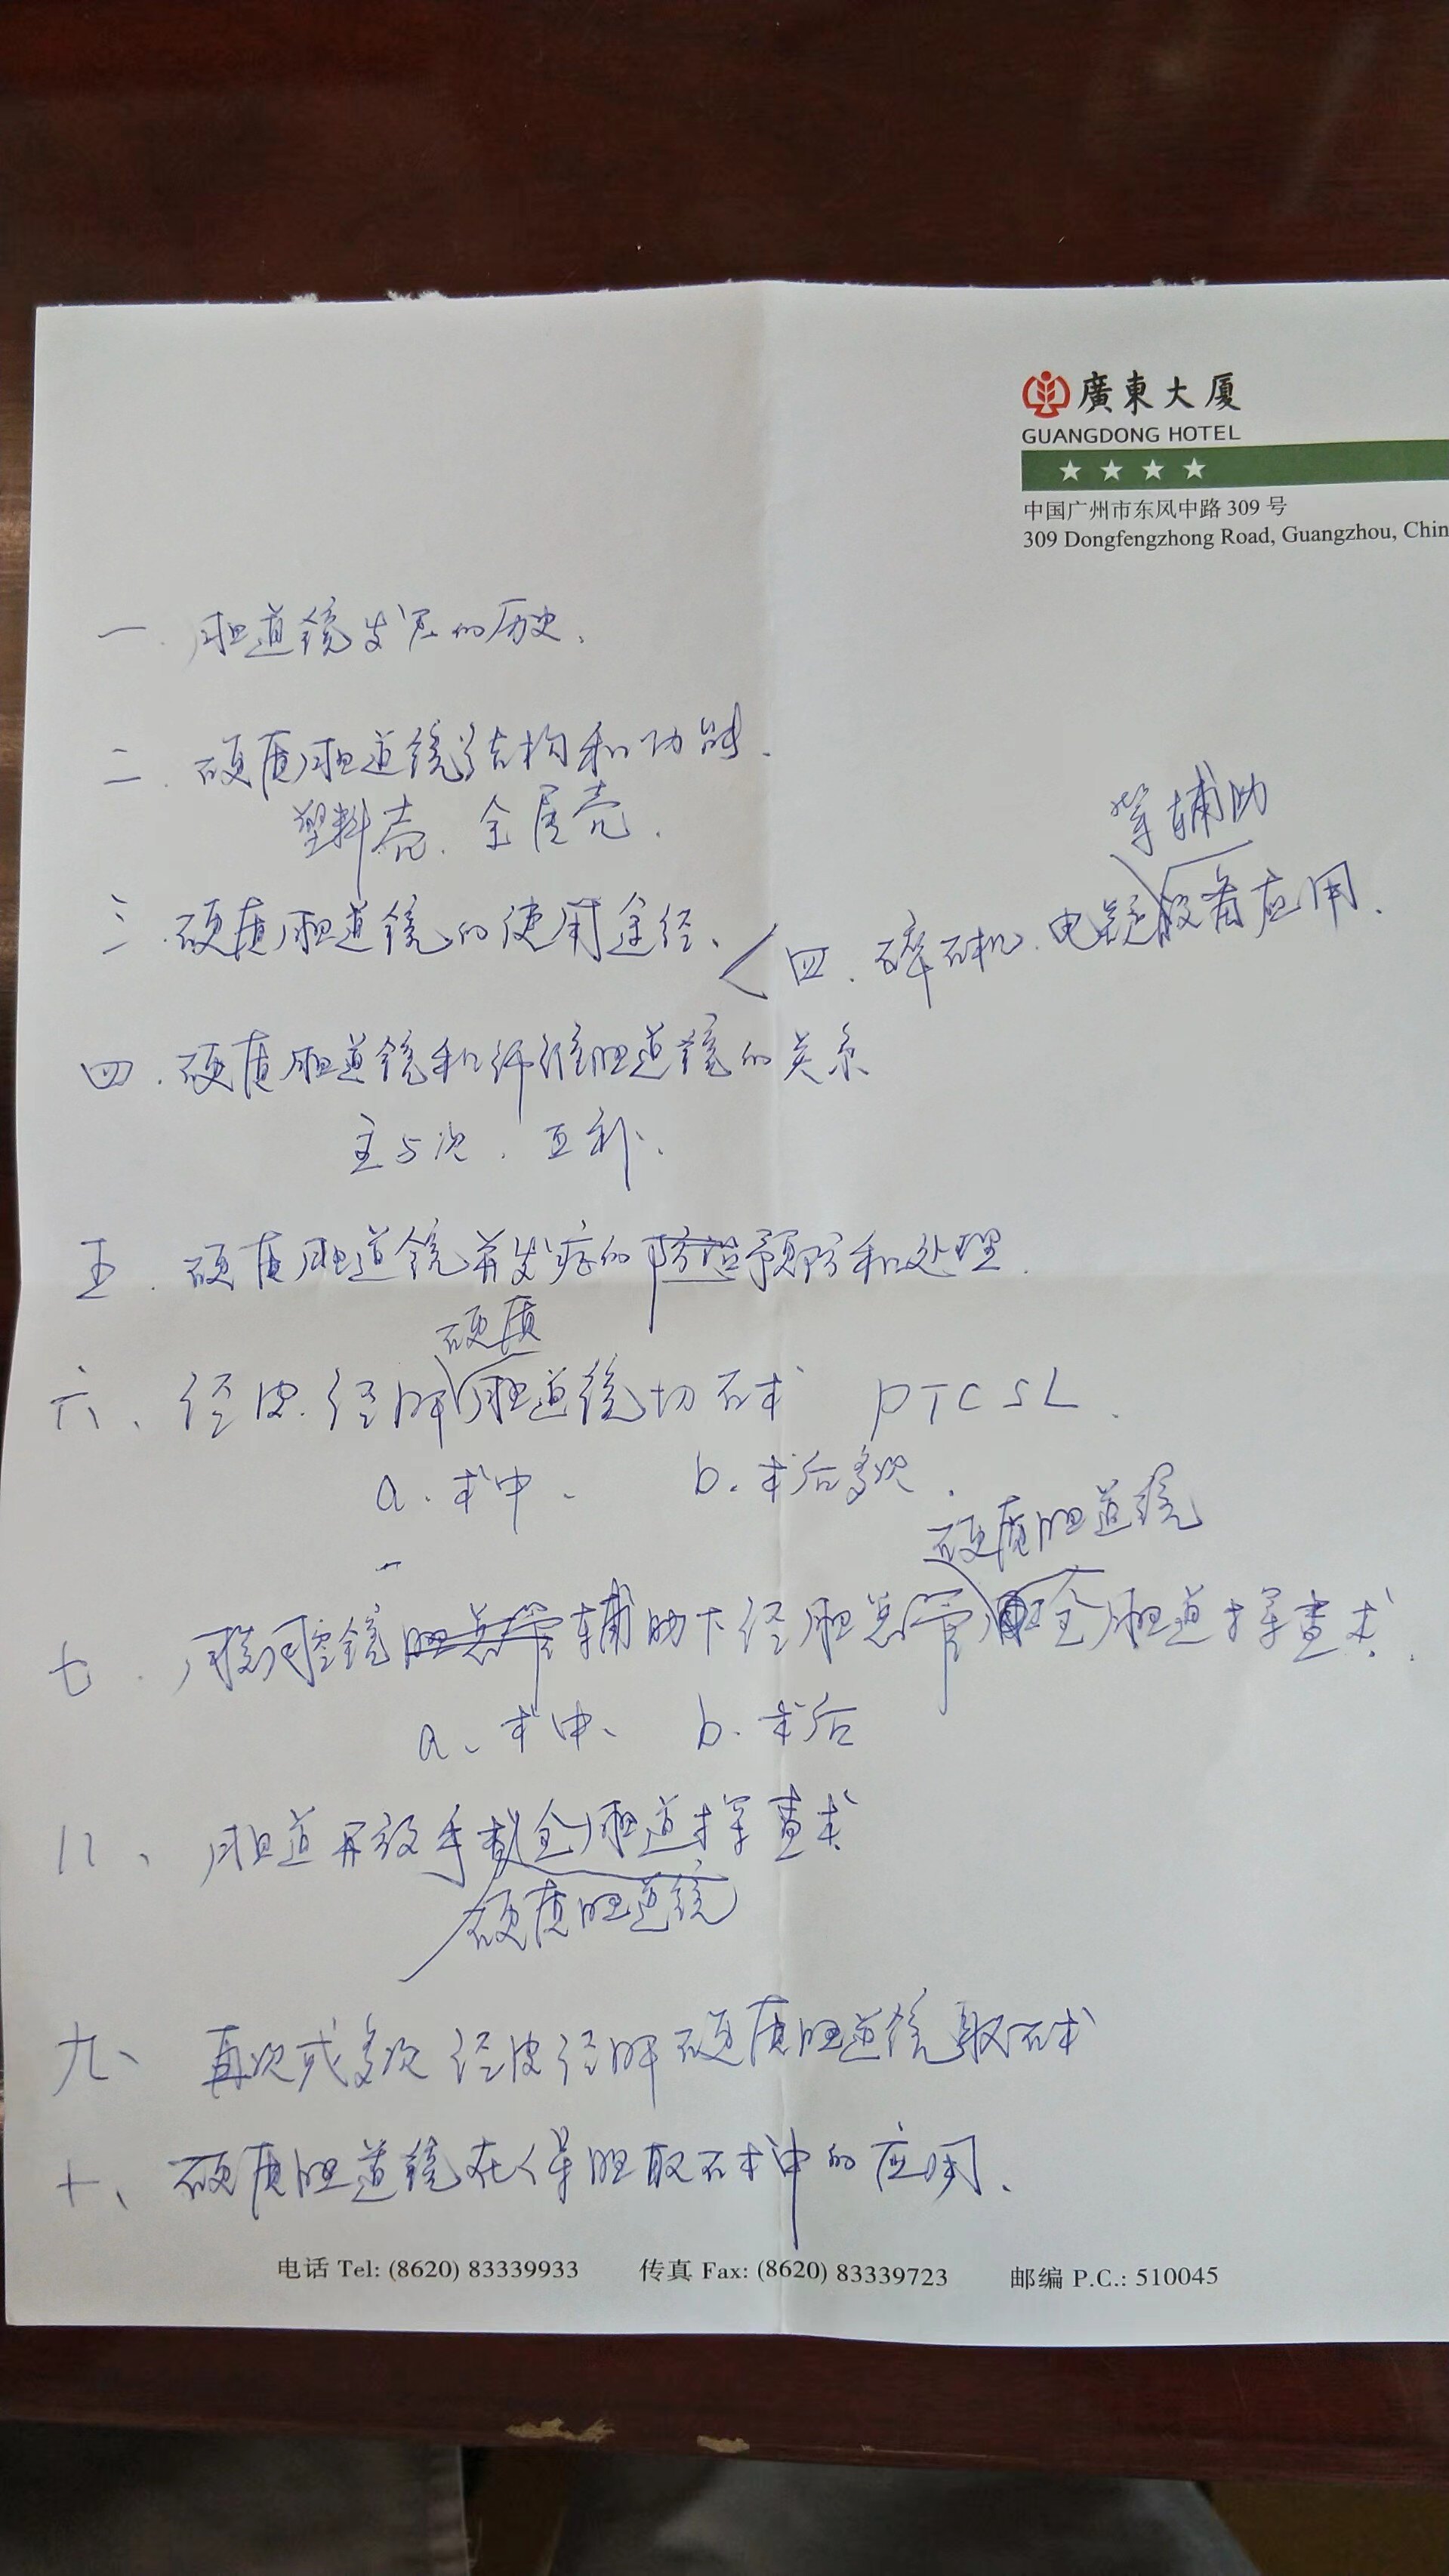 廣東大厦
GUANGDONG HOTEL
中国广州市东风中路 309 号
309 Dongfengzhong Road, Guangzhou, Chin
一. 胆道镜发展的历史.
二. 硬质胆道镜结构和功能.
塑料壳. 金属壳.
三. 硬质胆道镜的使用途径.
等辅助
四. 碎石机. 电凝设备应用.
四. 硬质胆道镜和纤维胆道镜的关系
主与次. 互补.
五. 硬质胆道镜并发症的防治预防和处理.
硬质
六、经皮经肝胆道镜切石术 PTCSL.
a. 术中. b. 术后多次.
硬质胆道镜
七. 腹腔镜胆总管辅助下经胆总管全胆道探查术.
a、术中、 b. 术后
八、胆道开放手术全胆道探查术
硬质胆道镜
九、再次或多次经皮经肝硬质胆道镜取石术
十、硬质胆道镜在保胆取石术中的应用.
电话 Tel: (8620) 83339933 传真 Fax: (8620) 83339723 邮编 P.C.: 510045